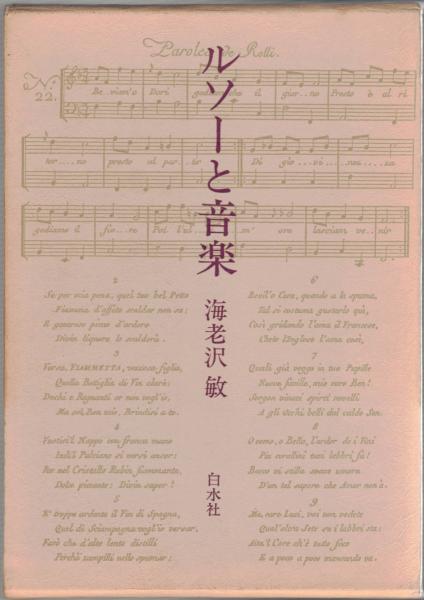 Parole de Rolli.
No. 22.
ルソーと音楽
海老沢敏
白水社
Be vian'o Dori godiam che il gior-no Presto è al ri
tor...no presto al par...tir Di gio...vi...nez...za
godiamo il fio...re Poi l'ul m' ore lasciam ve..nir
2
Se per mia pena, quel tuo bel Petto
Fiamma d'affetto scaldar non sa;
E generoso pien d'ardore
Divin liquore lo scalderà.
3
Versa, FIAMMETTA, vezzosa figlia,
Quella Bottiglia di Vin clarè:
Dechi e Regnanti or non vogl'io,
Ma sol, Ben mio, Brindisi a te.
4
Vuotisi'l Nappo con franca mano
Indi'l Pulciano si versi ancor:
Por nel Cristallo Rubin fiammante,
Dolce piccante: Divin sapor!
5
E' troppo ardente il Vin di Spagna,
Quel di Sciampagna vogl'io versar,
Farò che d'alto lento distilli
Perchè zampilli nello spumar;
6
Bevil'o Cara, quando a la spuma,
Tal si costuma gustarlo qui,
Così gridando l'ama il Francese,
Cheto l'Inglese l'ama così,
7
Quali già veggo in tue Pupille
Nuove faville, mio caro Ben!
Sorgon vivaci spirti novelli
A gli occhi belli dal caldo Sen.
8
O vemo, o Bello, l'ardor de i Vini
Piu corallini tuoi labbri fà!
Bacco vi stilla soave umore
D'un tal sapore che Amor non à.
9
Ma, cari Luci, voi non vedete
Quel'altra Sete su i labbri sta:
Aita'l Core ch'è tutto foco
E a poco a poco mancando va.